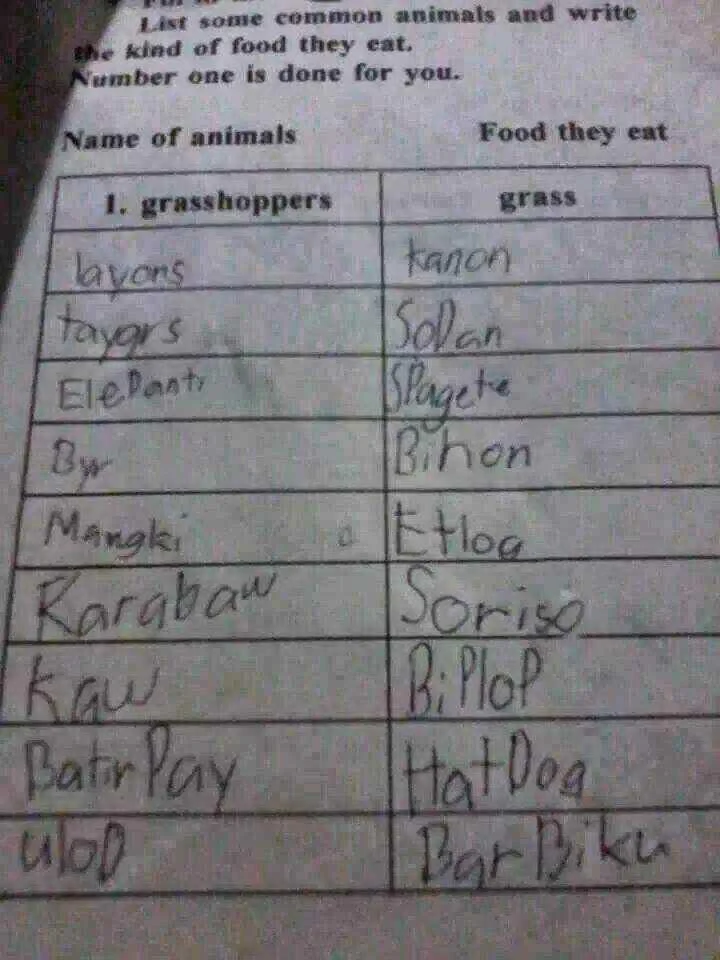 List some common animals and write
the kind of food they eat.
Number one is done for you.
Name of animals Food they eat
1. grasshoppers grass
layons kanon
taygrs SoDan
EleDants SPagete
Byr Bihon
Mangki Etlog
Karabaw Soriso
Kaw BiPloP
BatirPay HatDog
uloD BarBiku